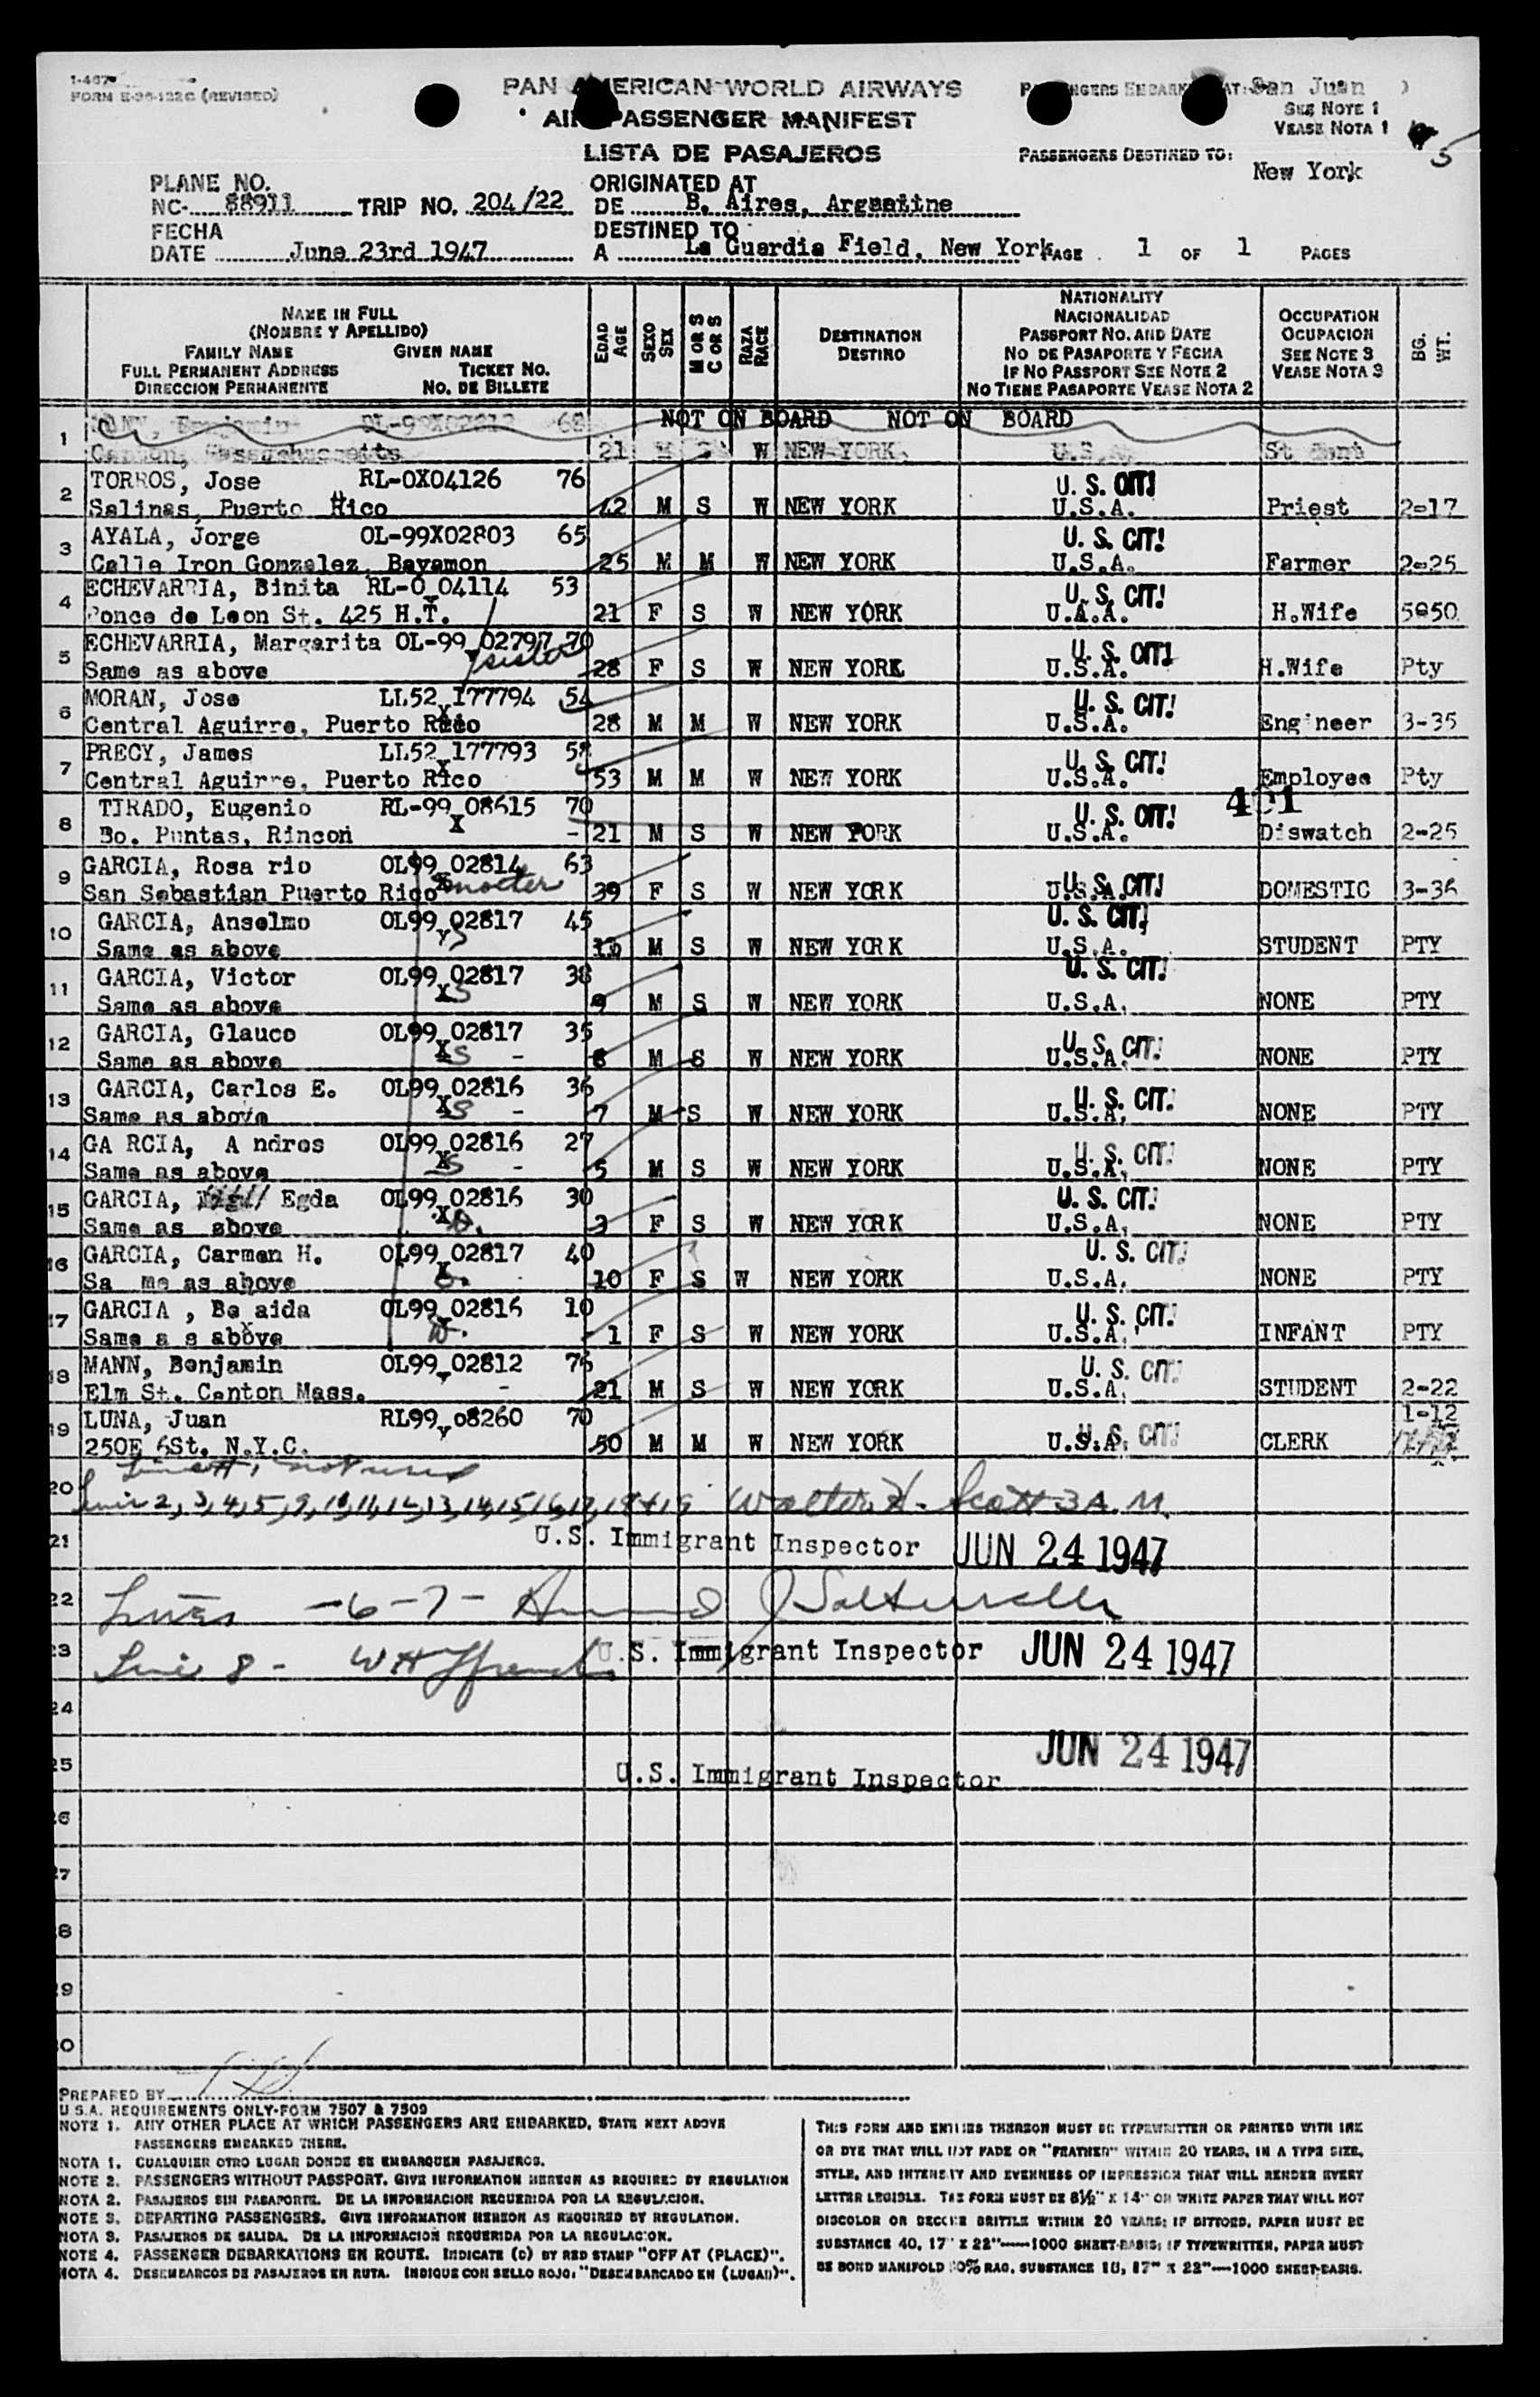 FORM E-36-122C (REVISED)
PAN AMERICAN WORLD AIRWAYS
AIR PASSENGER MANIFEST
LISTA DE PASAJEROS
PASSENGERS EMBARKED AT: San Juan
SEE NOTE 1
VEASE NOTA 1
5
PASSENGERS DESTINED TO:
New York
PLANE NO.
NC- 88911 TRIP NO. 204/22
FECHA
DATE June 23rd 1947
ORIGINATED AT
DE B. Aires,
DESTINED TO
A La Guardia Field, New York
PAGE 1 OF 1 PAGES
NAME IN FULL
(NOMBRE Y APELLIDO)
FAMILY NAME GIVEN NAME
FULL PERMANENT ADDRESS TICKET NO.
DIRECCION PERMANENTE NO. DE BILLETE
EDAD AGE
SEXO SEX
M OR S C OR S
RAZA RACE
DESTINATION
DESTINO
NATIONALITY
NACIONALIDAD
PASSPORT NO. AND DATE
NO DE PASAPORTE Y FECHA
IF NO PASSPORT SEE NOTE 2
NO TIENE PASAPORTE VEASE NOTA 2
OCCUPATION
OCUPACION
SEE NOTE 3
VEASE NOTA 3
BG. WT.
1 NOT ON BOARD NOT ON BOARD
21 M W NEW YORK
2 TORROS, Jose RL-0X04126 76 U. S. CIT!
Salinas, Puerto Rico 42 M S W NEW YORK U.S.A. Priest 2-17
3 AYALA, Jorge OL-99X02803 65 U. S. CIT!
Calle Iron Gonzalez, Bayamon 25 M M W NEW YORK U.S.A. Farmer 2-25
4 ECHEVARRIA, Binita RL-0 04114 53 U. S. CIT!
Ponce de Leon St. 425 H.T. 21 F S W NEW YORK U.A.A. H.Wife 5050
5 ECHEVARRIA, Margarita OL-99 02797 70 U. S. CIT!
Same as above sister 28 F S W NEW YORK U.S.A. H.Wife Pty
6 MORAN, Jose LL52 177794 54 U. S. CIT!
Central Aguirre, Puerto Rico 28 M M W NEW YORK U.S.A. Engineer 3-35
7 PRECY, James LL52 177793 U. S. CIT!
Central Aguirre, Puerto Rico 53 M M W NEW YORK U.S.A. Employee Pty
8 TIRADO, Eugenio RL-99 08615 70 U. S. CIT! 401
Bo. Puntas, Rincon X - 21 M S W NEW YORK U.S.A. Diswatch 2-25
9 GARCIA, Rosa rio OL99 02814 63 U. S. CIT!
San Sebastian Puerto Rico 39 F S W NEW YORK U.S.A. DOMESTIC 3-36
10 GARCIA, Anselmo OL99 02817 45 U. S. CIT!
Same as above M S W NEW YORK U.S.A. STUDENT PTY
11 GARCIA, Victor OL99 02817 38 U. S. CIT!
Same as above X S 9 M S W NEW YORK U.S.A. NONE PTY
12 GARCIA, Glauco OL99 02817 35 U. S. CIT!
Same as above X S - 8 M S W NEW YORK U.S.A. NONE PTY
13 GARCIA, Carlos E. OL99 02816 36 U. S. CIT!
Same as above X S - 7 M S W NEW YORK U.S.A. NONE PTY
14 GA RCIA, A ndres OL99 02816 27 U. S. CIT!
Same as above X S - 5 M S W NEW YORK U.S.A. NONE PTY
15 GARCIA, Egda OL99 02816 30 U. S. CIT!
Same as above X D. 3 F S W NEW YORK U.S.A. NONE PTY
16 GARCIA, Carmen H. OL99 02817 40 U. S. CIT!
Sa me as above 10 F S W NEW YORK U.S.A. NONE PTY
17 GARCIA , Be aida OL99 02816 10 U. S. CIT!
Same a s above 1 F S W NEW YORK U.S.A. INFANT PTY
18 MANN, Benjamin OL99 02812 76 U. S. CIT!
Elm St. Canton Mass. - 21 M S W NEW YORK U.S.A. STUDENT 2-22
19 LUNA, Juan RL99 08260 70 U. S. CIT! 1-12
250E 6St. N.Y.C. 50 M M W NEW YORK U.S.A. CLERK
not used
20 2, 3, 4, 5, 9, 10, 11, 12, 13, 14, 15, 16, 17, 18 & 19 Walter H. Scott 3 A.M.
21 U.S. Immigrant Inspector JUN 24 1947
22 Lines -6-7-
23 Line 8 - U.S. Immigrant Inspector JUN 24 1947
24
25 U.S. Immigrant Inspector JUN 24 1947
PREPARED BY
U.S.A. REQUIREMENTS ONLY-FORM 7507 & 7509
NOTE 1. ANY OTHER PLACE AT WHICH PASSENGERS ARE EMBARKED, STATE NEXT ABOVE
PASSENGERS EMBARKED THERE.
NOTA 1. CUALQUIER OTRO LUGAR DONDE SE EMBARQUEN PASAJEROS.
NOTE 2. PASSENGERS WITHOUT PASSPORT. GIVE INFORMATION HEREON AS REQUIRED BY REGULATION
NOTA 2. PASAJEROS SIN PASAPORTE. DE LA INFORMACION REQUERIDA POR LA REGULACION.
NOTE 3. DEPARTING PASSENGERS. GIVE INFORMATION HEREON AS REQUIRED BY REGULATION.
NOTA 3. PASAJEROS DE SALIDA. DE LA INFORMACION REQUERIDA POR LA REGULACION.
NOTE 4. PASSENGER DEBARKATIONS EN ROUTE. INDICATE (D) BY RED STAMP "OFF AT (PLACE)".
NOTA 4. DESEMBARCOS DE PASAJEROS EN RUTA. INDIQUE CON SELLO ROJO: "DESEMBARCADO EN (LUGAR)".
THIS FORM AND ENTRIES THEREON MUST BE TYPEWRITTEN OR PRINTED WITH INK
OR DYE THAT WILL NOT FADE OR "FEATHER" WITHIN 20 YEARS, IN A TYPE SIZE,
STYLE, AND INTENSITY AND EVENNESS OF IMPRESSION THAT WILL RENDER EVERY
LETTER LEGIBLE. THE FORM MUST BE 8½" X 14" ON WHITE PAPER THAT WILL NOT
DISCOLOR OR BECOME BRITTLE WITHIN 20 YEARS; IF DITTOED, PAPER MUST BE
SUBSTANCE 40, 17" X 22"——1000 SHEET-BASIS; IF TYPEWRITTEN, PAPER MUST
BE BOND MANIFOLD 50% RAG, SUBSTANCE 16, 17" X 22"—1000 SHEET-BASIS.